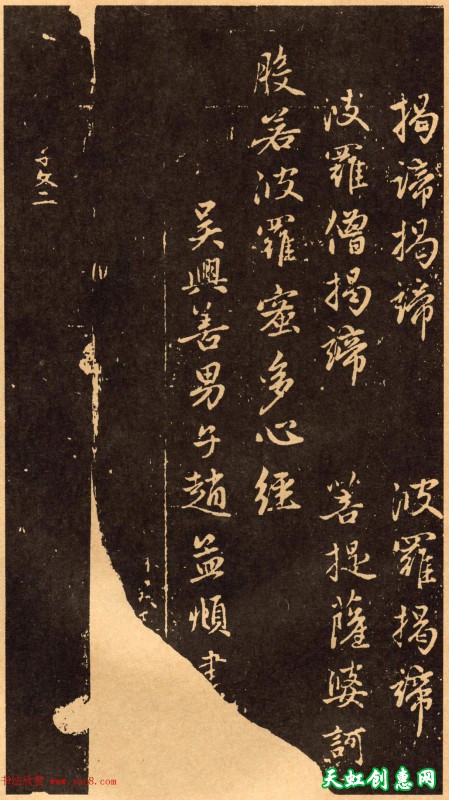 揭諦揭諦 波羅揭諦
波羅僧揭諦 菩提薩婆訶
般若波羅蜜多心經
吳興善男子趙益順書
天虹创意网